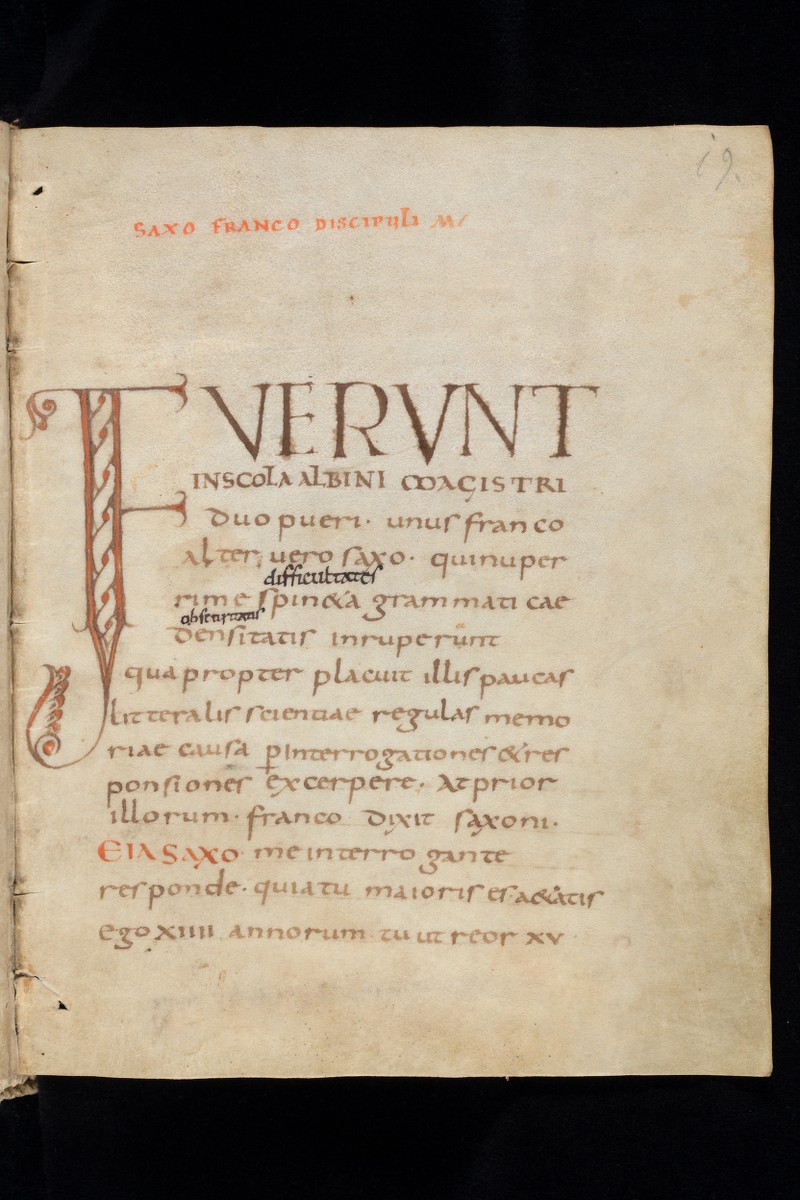 19.
SAXO FRANCO DISCIPULI
FUERUNT
IN SCOLA ALBINI MAGISTRI
duo pueri. unus franco
alter uero saxo. qui nuper
difficultates
rime spin&a grammaticae
obscuritatis
densitatis inruperunt
quapropter placuit illis paucas
litteralis scientiae regulas memo
riae causa p̲ interrogationes &res
ponsiones excerpere. At prior
illorum. franco dixit saxoni.
EIA SAXO. me interrogante
responde. quia tu maioris es a&atis
ego XIIII annorum tu ut reor XV